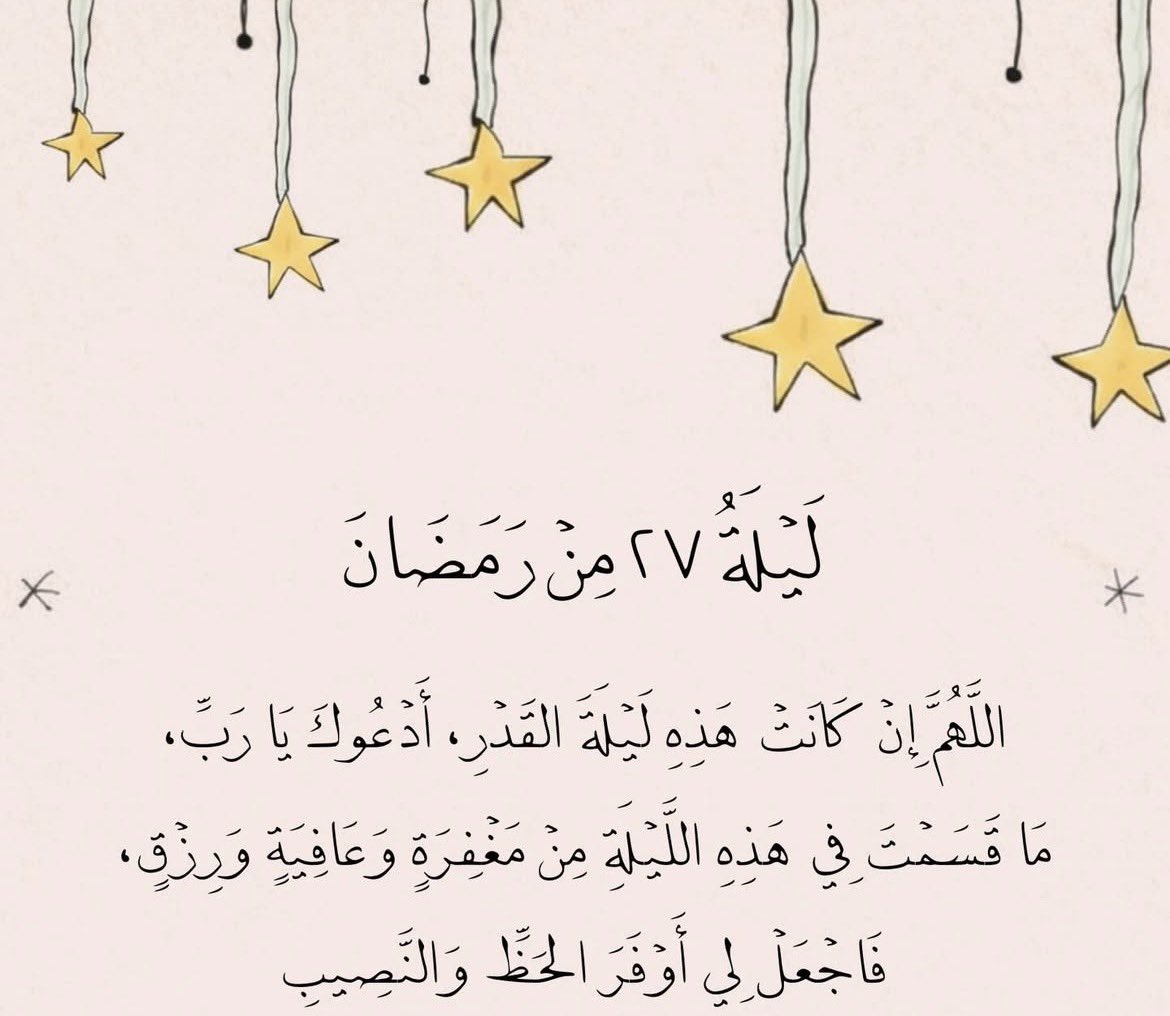 لَيْلَةُ ٢٧ مِنْ رَمَضَانَ
اللَّهُمَّ إِنْ كَانَتْ هَذِهِ لَيْلَةَ القَدْرِ، أَدْعُوكَ يَا رَبِّ،
مَا قَسَمْتَ فِي هَذِهِ اللَّيْلَةِ مِنْ مَغْفِرَةٍ وَعَافِيَةٍ وَرِزْقٍ،
فَاجْعَلْ لِي أَوْفَرَ الحَظِّ وَالنَّصِيبِ